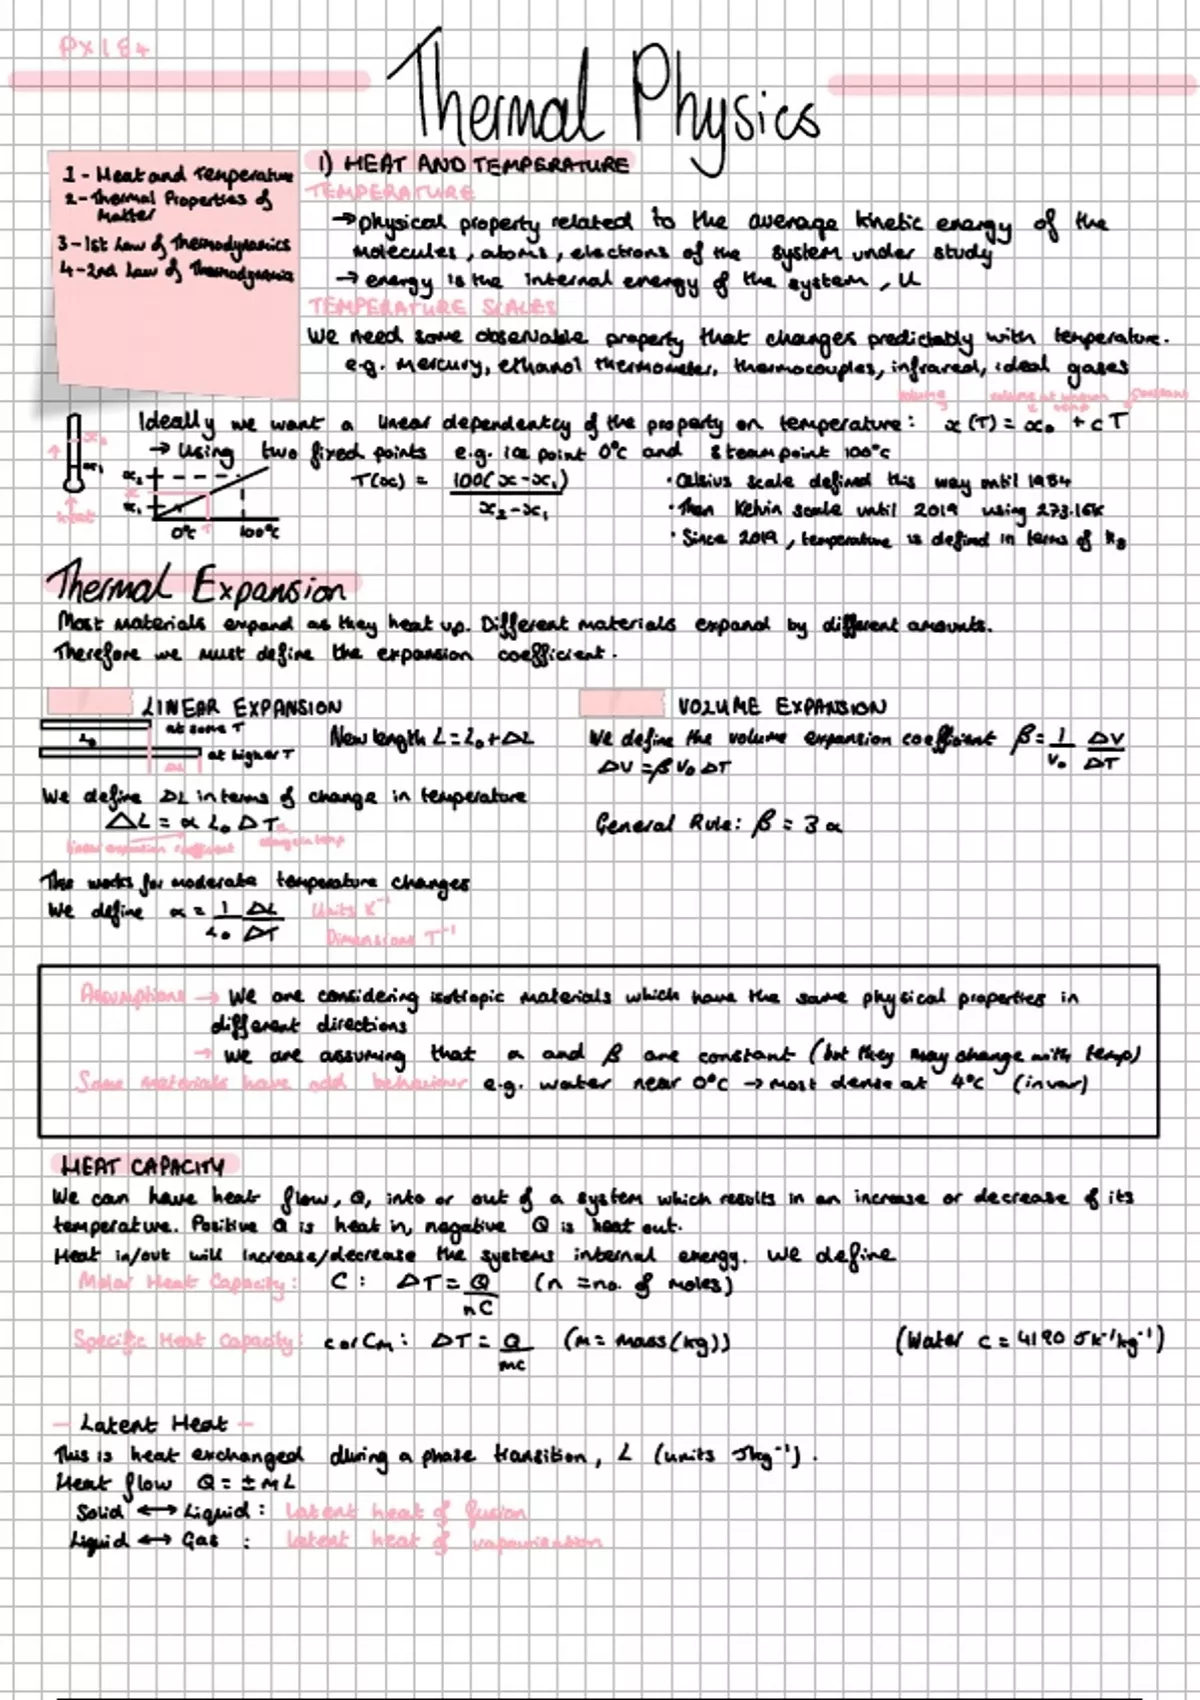 PX184
Thermal Physics
1 - Heat and Temperature
2 - Thermal Properties of
Matter
3 - 1st Law of Thermodynamics
4 - 2nd Law of Thermodynamics
1) HEAT AND TEMPERATURE
TEMPERATURE
→ physical property related to the average kinetic energy of the
molecules, atoms, electrons of the system under study
→ energy is the internal energy of the system, U
TEMPERATURE SCALES
We need some observable property that changes predictably with temperature.
e.g. Mercury, ethanol thermometer, thermocouples, infrared, ideal gases
volume volume at known temp constant
Ideally we want a linear dependentcy of the property on temperature: x(T) = x₀ + cT
→ Using two fixed points e.g. ice point 0°C and steam point 100°C
T(x) = 100(x-x₁) / x₂-x₁
x₂
x₁
x₂
x
x₁
0°C T 100°C
• Celsius scale defined this way until 1954
• Then Kelvin scale until 2019 using 273.16K
• Since 2019, temperature is defined in terms of kB
Thermal Expansion
Most materials expand as they heat up. Different materials expand by different amounts.
Therefore we must define the expansion coefficient.
LINEAR EXPANSION
at some T
L₀
at higher T
ΔL
New length L = L₀ + ΔL
We define ΔL in terms of change in temperature
ΔL = α L₀ ΔT
linear expansion coefficient change in temp
This works for moderate temperature changes
We define α = 1/L₀ ΔL/ΔT Units K⁻¹
Dimensions T⁻¹
VOLUME EXPANSION
We define the volume expansion coefficient β = 1/V₀ ΔV/ΔT
ΔV = β V₀ ΔT
General Rule: β = 3α
Assumptions → We are considering isotropic materials which have the same physical properties in
different directions
→ we are assuming that α and β are constant (but they may change with temp)
Some materials have odd behaviour e.g. water near 0°C → most dense at 4°C (invar)
HEAT CAPACITY
We can have heat flow, Q, into or out of a system which results in an increase or decrease of its
temperature. Positive Q is heat in, negative Q is heat out.
Heat in/out will increase/decrease the systems internal energy. We define
Molar Heat Capacity: C: ΔT = Q/nC (n = no. of moles)
Specific Heat Capacity: c or Cm: ΔT = Q/mc (m = mass (kg)) (Water c = 4190 JK⁻¹kg⁻¹)
- Latent Heat -
This is heat exchanged during a phase transition, L (units Jkg⁻¹).
Heat flow Q = ± mL
Solid ↔ Liquid: latent heat of fusion
Liquid ↔ Gas: latent heat of vapourisation